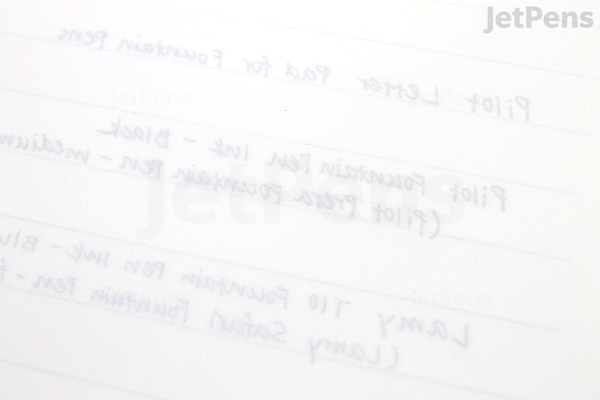 JetPens
Pilot Letter Pad for Fountain Pens
Pilot Fountain Pen Ink - Black
(Pilot Prera Fountain Pen - medium
Lamy T10 Fountain Pen Ink - Blu
(Lamy Safari Fountain Pen - f
JetPens
JetPens
JetPens
JetPens
JetPens